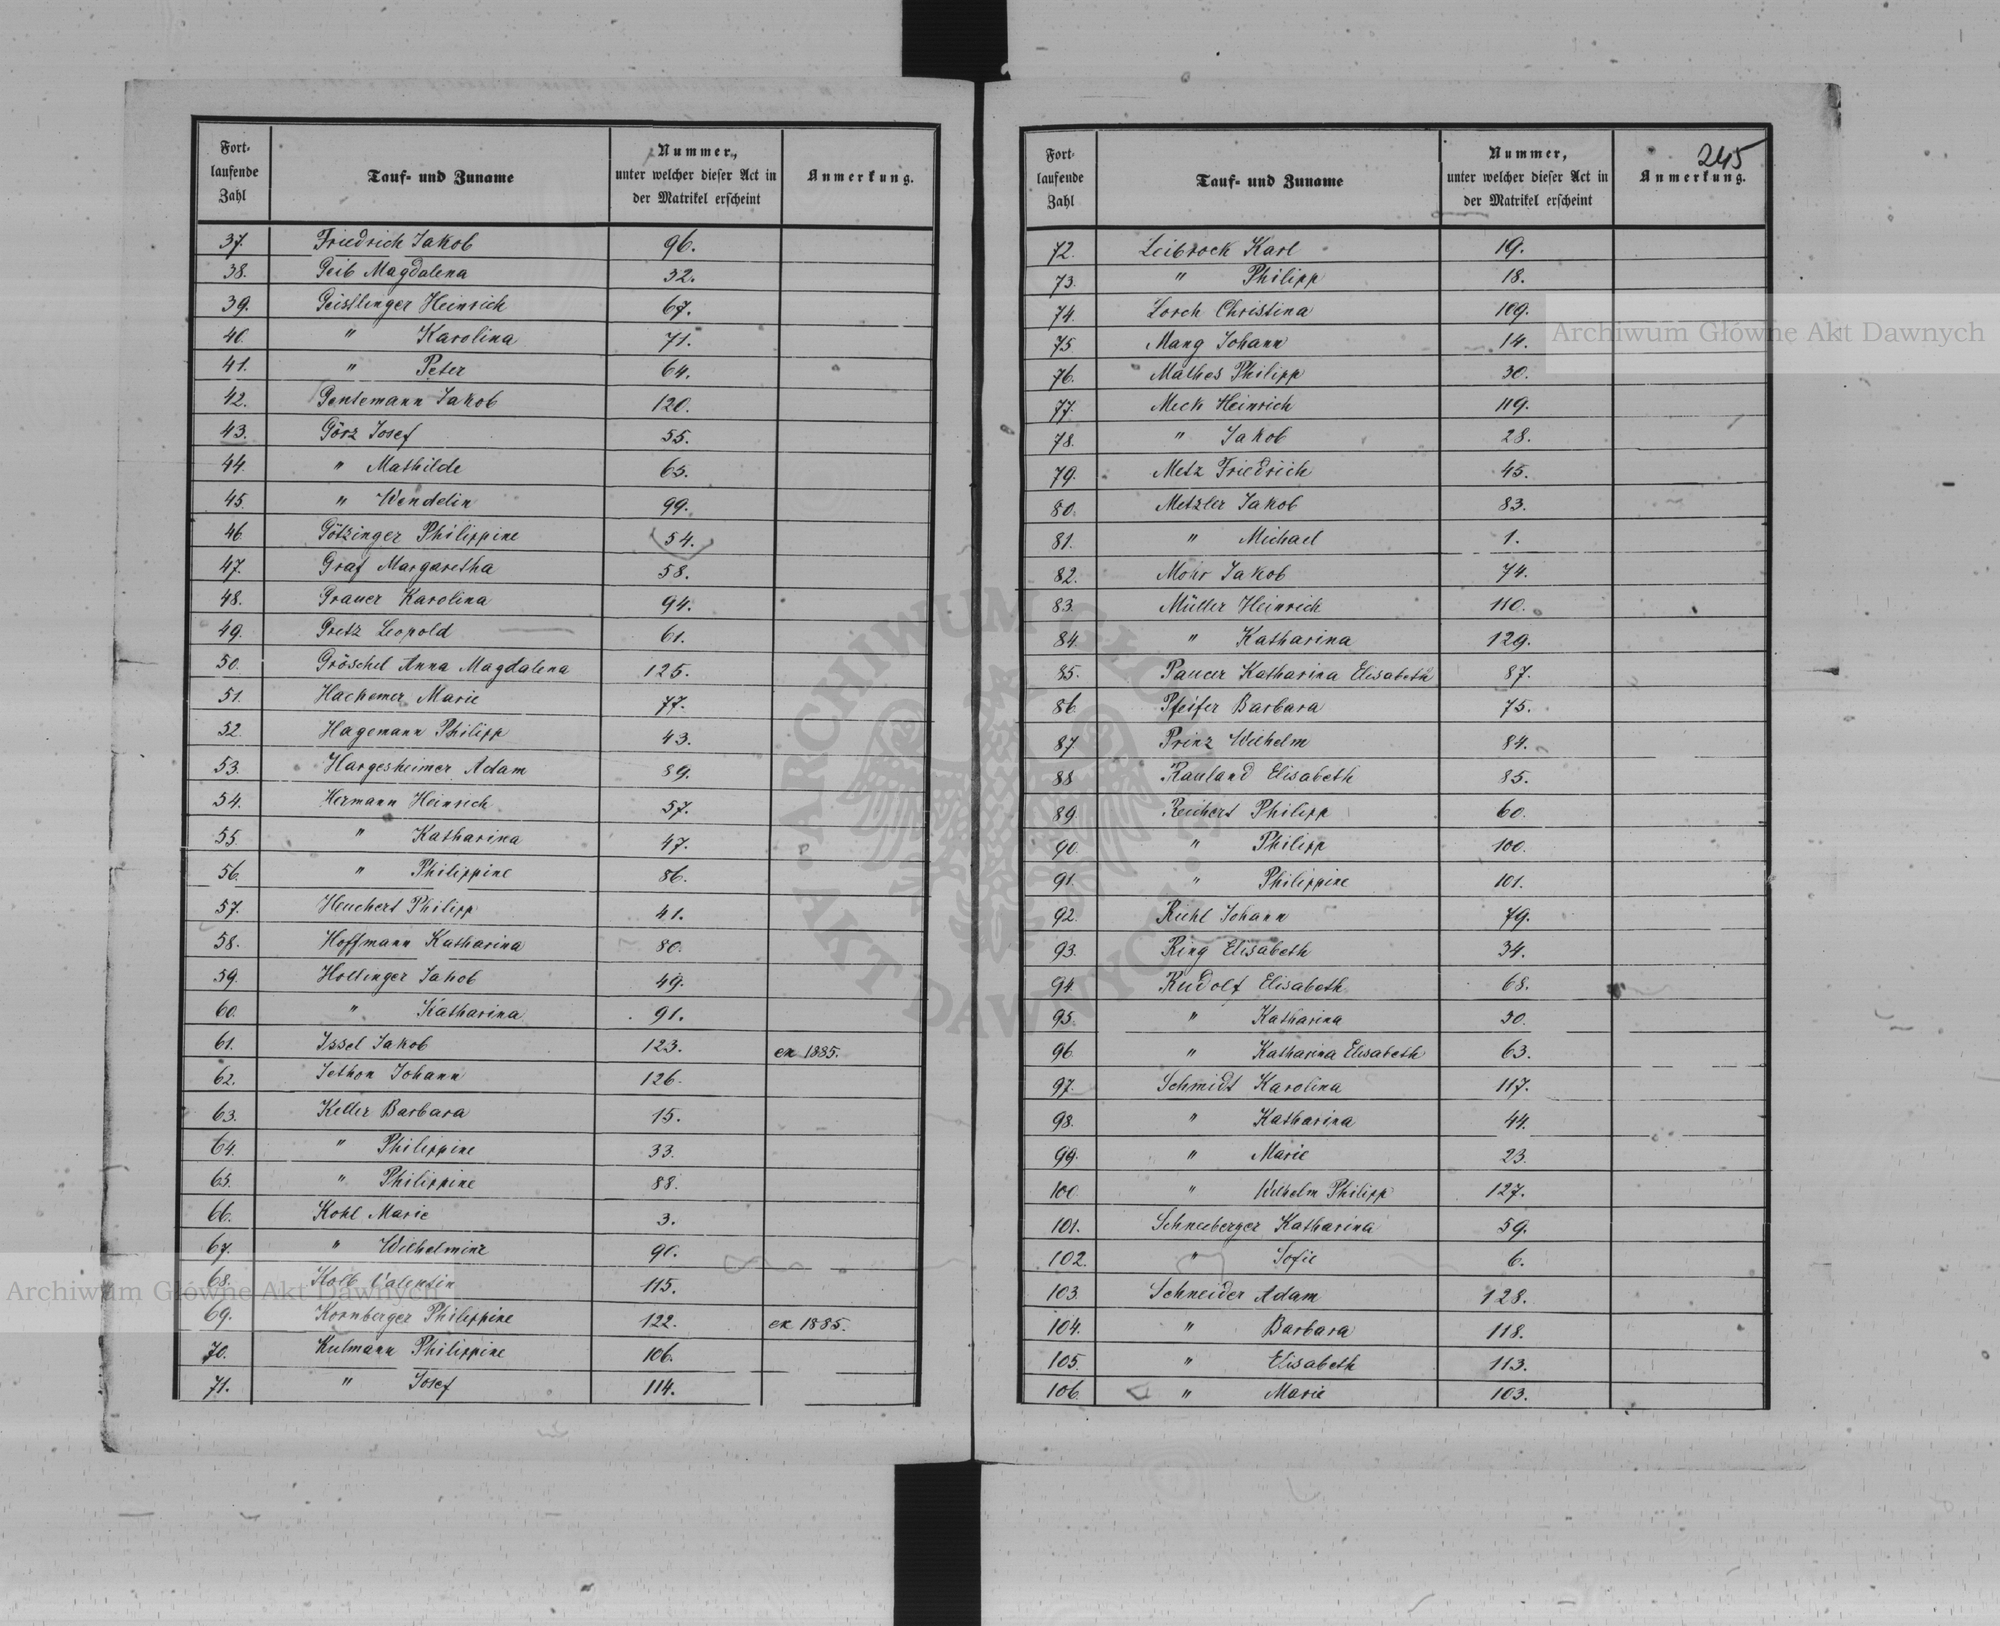 Fort-
laufende
Zahl
Tauf- und Zuname
Nummer,
unter welcher dieser Act in
der Matrikel erscheint
Anmerkung.
37. Friedrich Jakob 96.
38. Geib Magdalena 32.
39. Geistlinger Heinrich 67.
40. " Karolina 71.
41. " Peter 64.
42. Gentemann Jakob 120.
43. Görz Josef 55.
44. " Mathilde 65.
45. " Wendelin 99.
46. Götzinger Philippine 54.
47. Graf Margaretha 58.
48. Grauer Karolina 94.
49. Gretz Leopold 61.
50. Gröschel Anna Magdalena 125.
51. Hackemer Marie 77.
52. Hagemann Philipp 43.
53. Hargesheimer Adam 89.
54. Hermann Heinrich 57.
55. " Katharina 47.
56. " Philippine 86.
57. Heuchert Philipp 41.
58. Hoffmann Katharina 80.
59. Hollinger Jakob 49.
60. " Katharina 91.
61. Issel Jakob 123. ex 1885.
62. Jethon Johann 126.
63. Keller Barbara 15.
64. " Philippine 33.
65. " Philippine 88.
66. Kohl Marie 3.
67. " Wilhelmine 90.
68. Kolb Valentin 115.
69. Kornberger Philippine 122. ex 1885.
70. Kulmann Philippine 106.
71. " Josef 114.
245
Fort-
laufende
Zahl
Tauf- und Zuname
Nummer,
unter welcher dieser Act in
der Matrikel erscheint
Anmerkung.
72. Leibrock Karl 19.
73. " Philipp 18.
74. Lorch Christina 109.
75. Mang Johann 14.
76. Mathes Philipp 30.
77. Meck Heinrich 119.
78. " Jakob 28.
79. Metz Friedrich 45.
80. Metzler Jakob 83.
81. " Michael 1.
82. Mohr Jakob 74.
83. Müller Heinrich 110.
84. " Katharina 129.
85. Paucer Katharina Elisabeth 87.
86. Pfeifer Barbara 75.
87. Prinz Wilhelm 84.
88. Rauland Elisabeth 85.
89. Reichert Philipp 60.
90. " Philipp 100.
91. " Philippine 101.
92. Riehl Johann 79.
93. Ring Elisabeth 34.
94. Rudolf Elisabeth 68.
95. " Katharina 50.
96. " Katharina Elisabeth 63.
97. Schmidt Karolina 117.
98. " Katharina 44.
99. " Marie 23.
100. " Wilhelm Philipp 127.
101. Schneeberger Katharina 59.
102. " Sofie 6.
103. Schneider Adam 128.
104. " Barbara 118.
105. " Elisabeth 113.
106. " Marie 103.
Archiwum Główne Akt Dawnych
Archiwum Główne Akt Dawnych
ARCHIWUM GŁÓWNE
AKT DAWNYCH